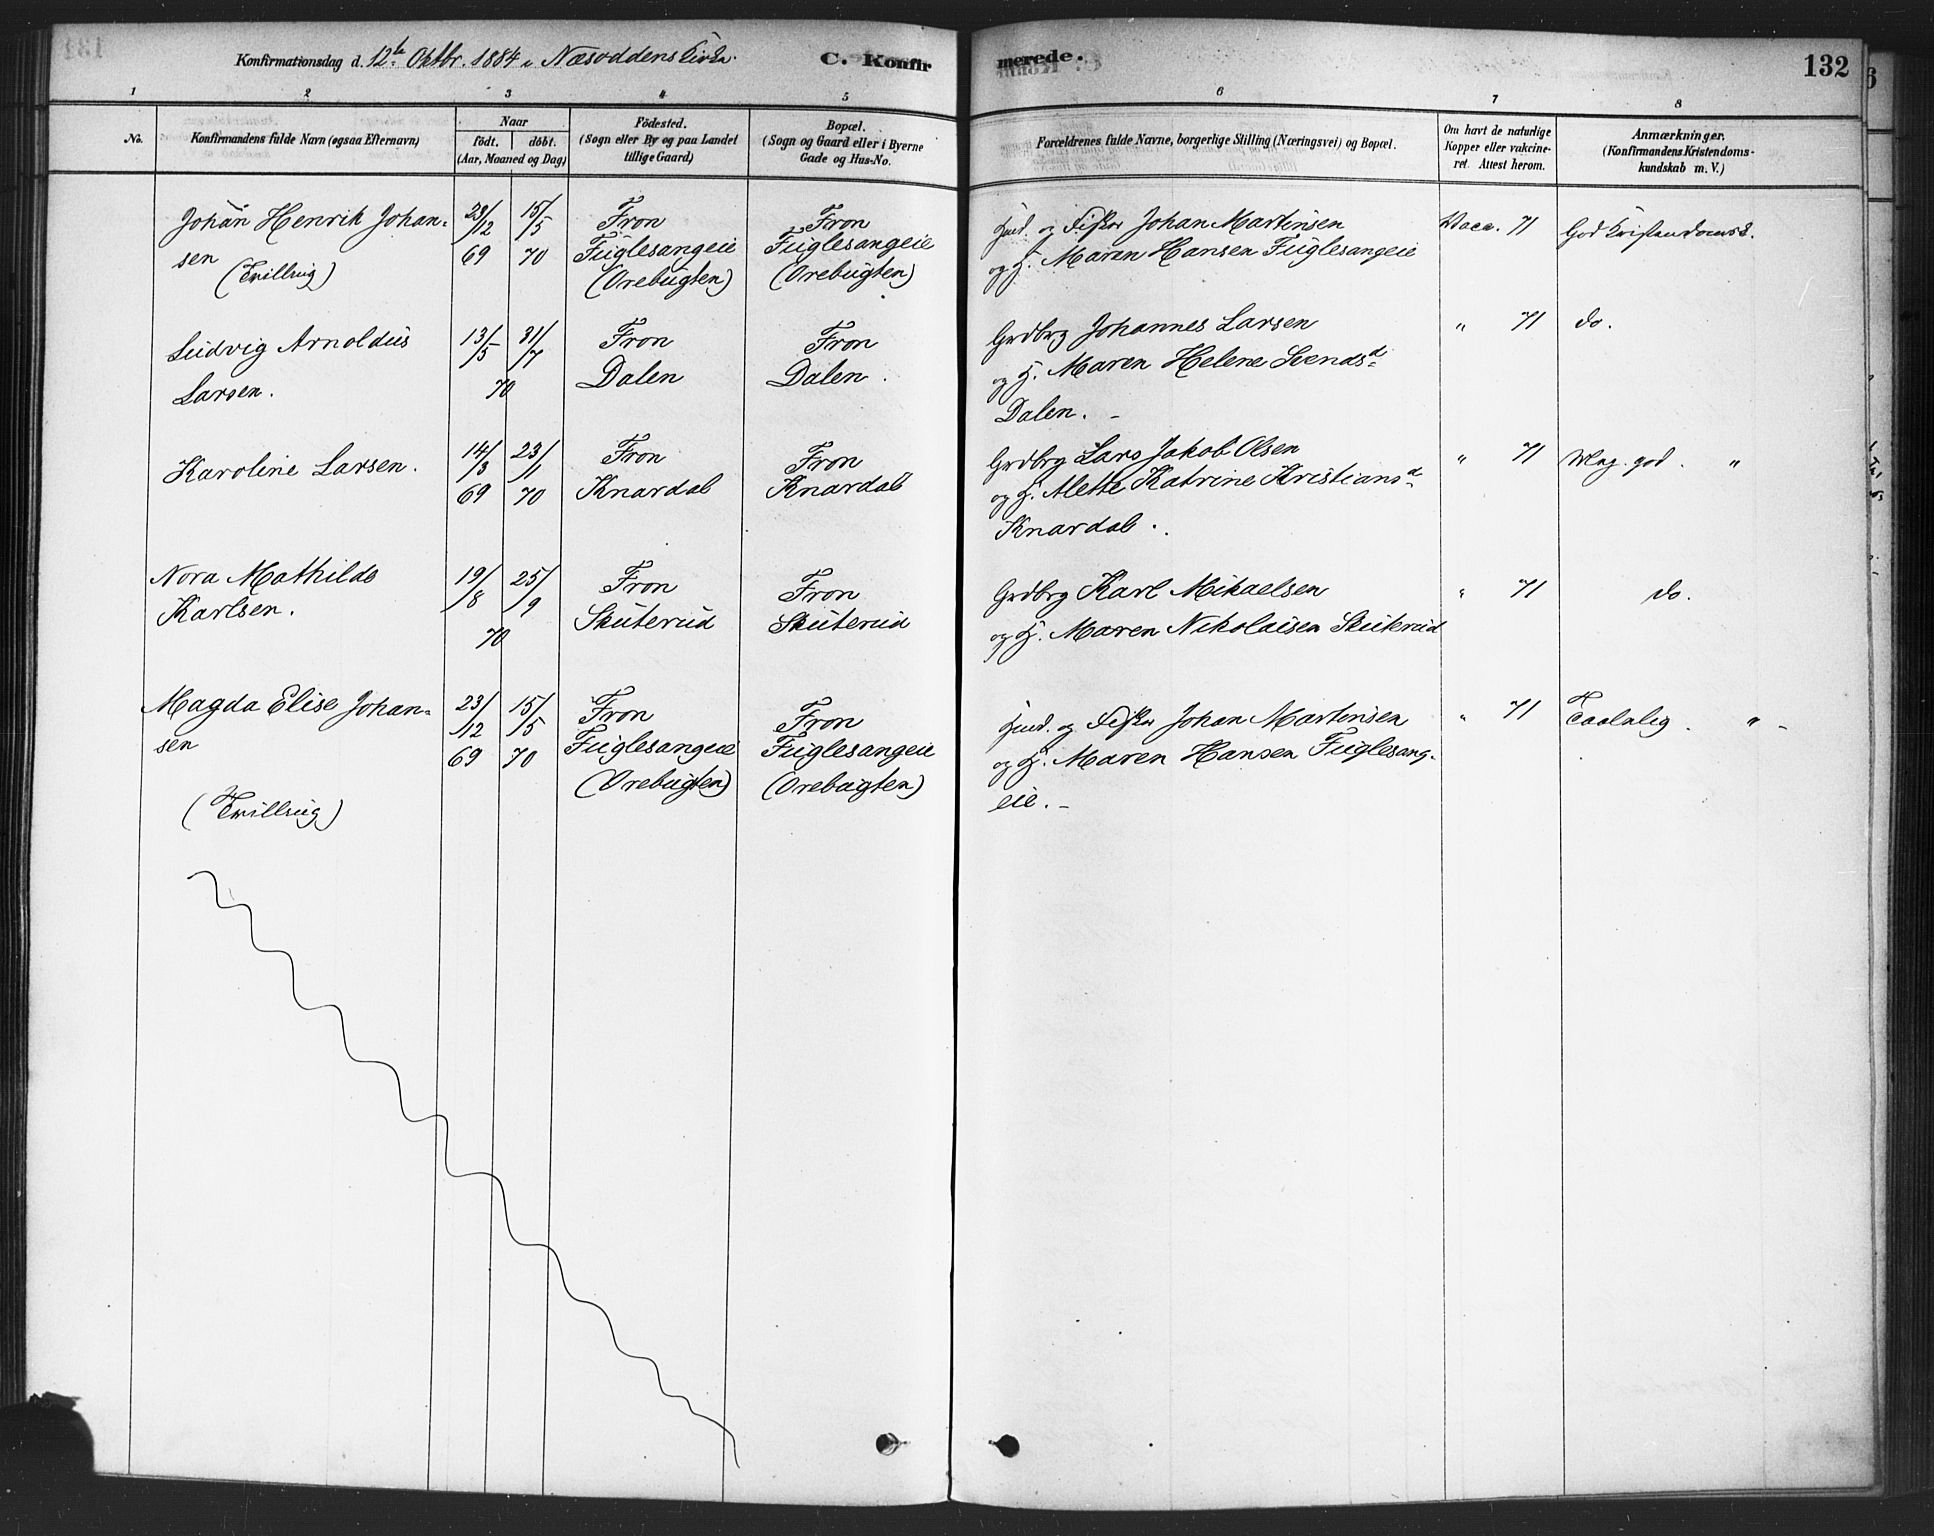 Konfirmationsdag d. 12te Oktbr. 1884 i Næsoddens Kirke.
C. Konfirmerede.
132
1 2 3 4 5 6 7 8
No.
Konfirmandens fulde Navn (ogsaa Efternavn)
Naar
födt. döbt.
(Aar, Maaned og Dag)
Födested.
(Sogn eller By og paa Landet
tillige Gaard)
Bopæl.
(Sogn og Gaard eller i Byerne
Gade og Hus-No.
Forældrenes fulde Navne, borgerlige Stilling (Næringsvei) og Bopæl.
Om havt de naturlige
Kopper eller vakcine-
ret. Attest herom.
Anmærkninger.
(Konfirmandens Kristendoms-
kundskab m. V.)
Johan Henrik Johan-
sen
(Tvilling)
23/12 69
15/5 70
Fron
Fuglesangeie
(Orebugten)
Fron
Fuglesangeie
(Orebugten)
Husd. og Fisker Johan Martinsen
og H. Maren Hansen Fuglesangeie
Vacc. 71
God Kristendomsk.
Ludvig Arnoldus
Larsen.
13/5 31/7
70
Fron
Dalen
Fron
Dalen.
Grdbrg Johannes Larsen
og H. Maren Helene Svendsd
Dalen. -
" 71
do.
Karoline Larsen.
14/3 69
23/1 70
Fron
Knardal
Fron
Knardal
Grdbrg Lars Jakob Olsen
og H. Alette Katrine Kristiansd
Knardal.
" 71
Mag. god. "
Nora Mathilde
Karlsen.
19/8 25/9
70
Fron
Skuterud
Fron
Skuterud
Grdbrg Karl Mikaelsen
og H. Maren Nikolaisen Skuterud
" 71
do.
Magda Elise Johan-
sen
(Tvilling)
23/12 69
15/5 70
Fron
Fuglesangeie
(Orebugten)
Fron
Fuglesangeie
(Orebugten)
Husd. og Fisker Johan Martinsen
og H. Maren Hansen Fuglesang-
eie. -
" 71
Taalalig. " -